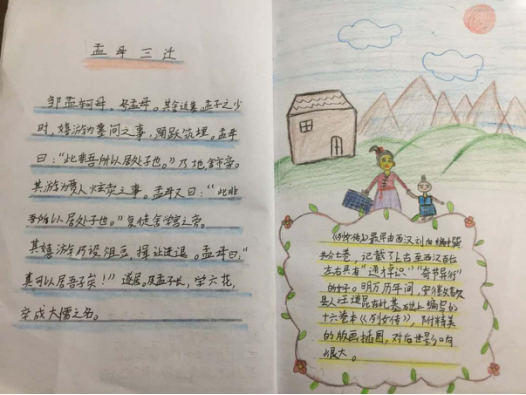 孟母三迁
邹孟轲母，号孟母。其舍近墓。孟子之少
时，嬉游为墓间之事，踊跃筑埋。孟母
曰："此非吾所以居处子也。"乃地，舍市旁。
其游为贾人炫卖之事。孟母又曰："此非
吾所以居处子也。"复徙舍学宫之旁。
其嬉游乃设俎豆，揖让进退。孟母曰："
真可以居吾子矣！"遂居。及孟子长，学六
卒成大儒之名。
《列传》最早由西汉刘向编撰
七卷，记载了上古至西汉百位
左右具有"通才""奇节异行"
的女子。明万历年间，安徽歙
县人汪道昆在此基础上编写的
十六卷本《列女传》，附精美
的版画插图，对后世影响
很大。